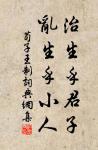 治生乎君子
亂生乎小人
荀子王制詞典網集